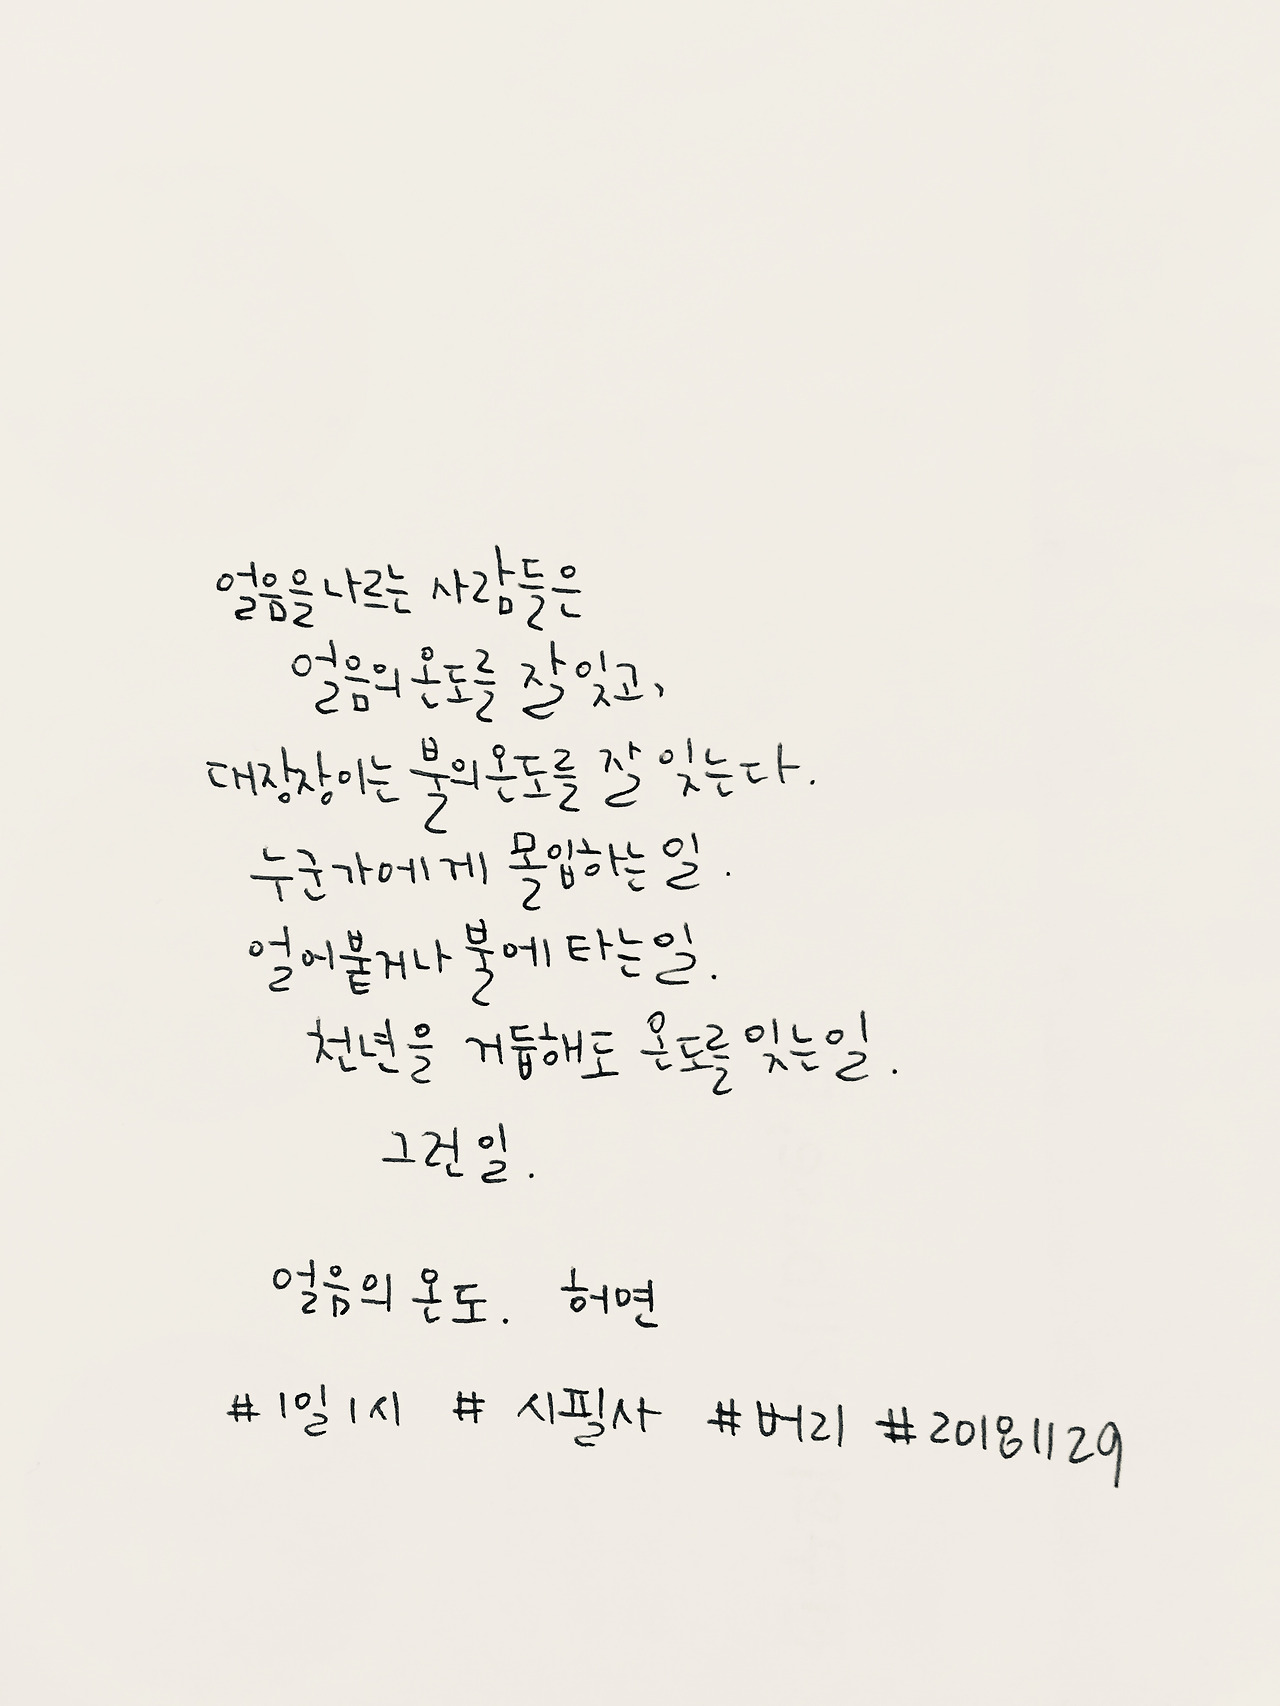 얼음을 나르는 사람들은
얼음의 온도를 잘 잊고,
대장장이는 불의 온도를 잘 잊는다.
누군가에게 몰입하는 일.
얼어붙거나 불에 타는 일.
천년을 거듭해도 온도를 잊는 일.
그런 일.
얼음의 온도. 허연
#1일1시 #시필사 #버리 #20181129